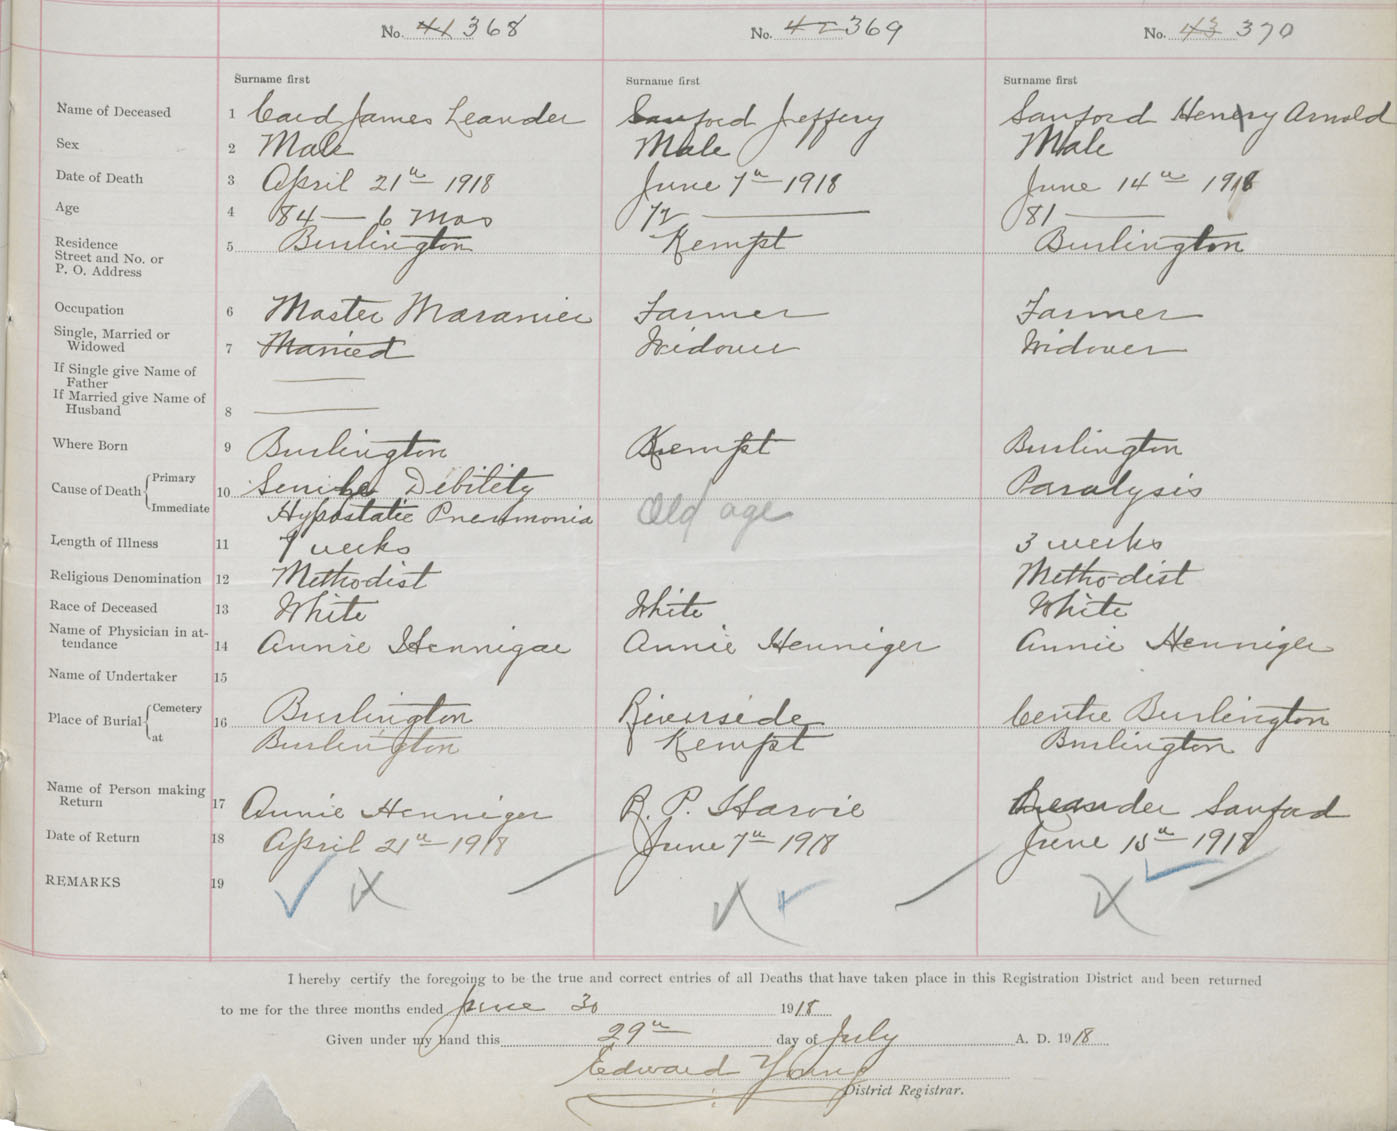 No. 41 368 No. 42 369 No. 43 370
Surname first Surname first Surname first
Name of Deceased 1 Card James Leander Sanford Jeffery Sanford Henery Arnold
Sex 2 Male Male Male
Date of Death 3 April 21st 1918 June 7th 1918 June 14th 1918
Age 4 84 — 6 Mos 72 — 81 —
Residence
Street and No. or 5 Burlington Kempt Burlington
P. O. Address
Occupation 6 Master Maranier Farmer Farmer
Single, Married or
Widowed 7 Married Widower Widower
If Single give Name of
Father —
If Married give Name of
Husband 8 —
Where Born 9 Burlington Kempt Burlington
Cause of Death { Primary 10 Senile Debility Paralysis
Immediate Hypostatic Pneumonia Old age
Length of Illness 11 7 weeks 3 weeks
Religious Denomination 12 Methodist Methodist
Race of Deceased 13 White White White
Name of Physician in at-
tendance 14 Annie Hennigar Annie Henniger Annie Henniger
Name of Undertaker 15
Place of Burial { Cemetery 16 Burlington Riverside Centre Burlington
at Burlington Kempt Burlington
Name of Person making
Return 17 Annie Henniger R. P. Harvie Leander Sanford
Date of Return 18 April 21st 1918 June 7th 1918 June 15th 1918
REMARKS 19
I hereby certify the foregoing to be the true and correct entries of all Deaths that have taken place in this Registration District and been returned
to me for the three months ended June 30 1918
Given under my hand this 29th day of July A. D. 1918
Edward Young
District Registrar.